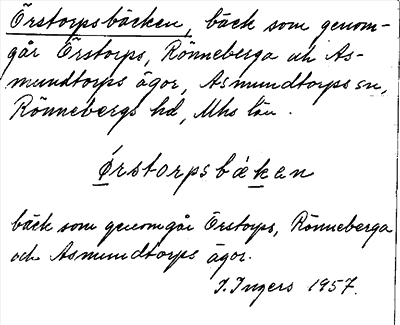 Örstorpsbäcken, bäck som genom-
går Örstorps, Rönneberga och As-
mundtorps ägor, Asmundtorps sn,
Rönnebergs hd, Mhs län.
Órstorpsbækan
bäck som genomgår Örstorps, Rönneberga
och Asmundtorps ägor.
I. Ingers 1957.